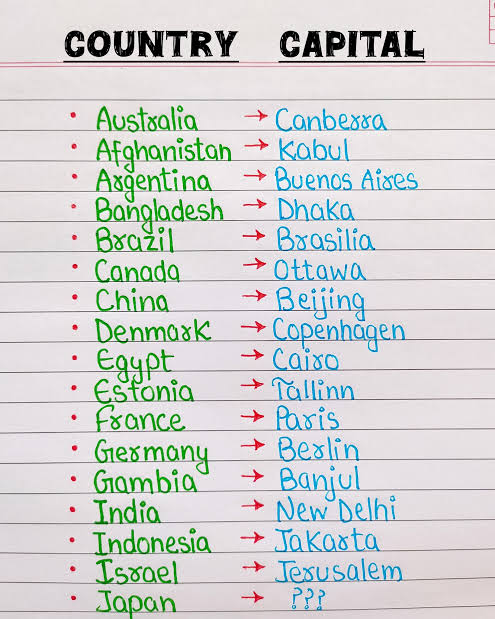 COUNTRY CAPITAL
• Australia → Canberra
• Afghanistan → Kabul
• Argentina → Buenos Aires
• Bangladesh → Dhaka
• Brazil → Brasilia
• Canada → Ottawa
• China → Beijing
• Denmark → Copenhagen
• Egypt → Cairo
• Estonia → Tallinn
• France → Paris
• Germany → Berlin
• Gambia → Banjul
• India → New Delhi
• Indonesia → Jakarta
• Israel → Jerusalem
• Japan → ???